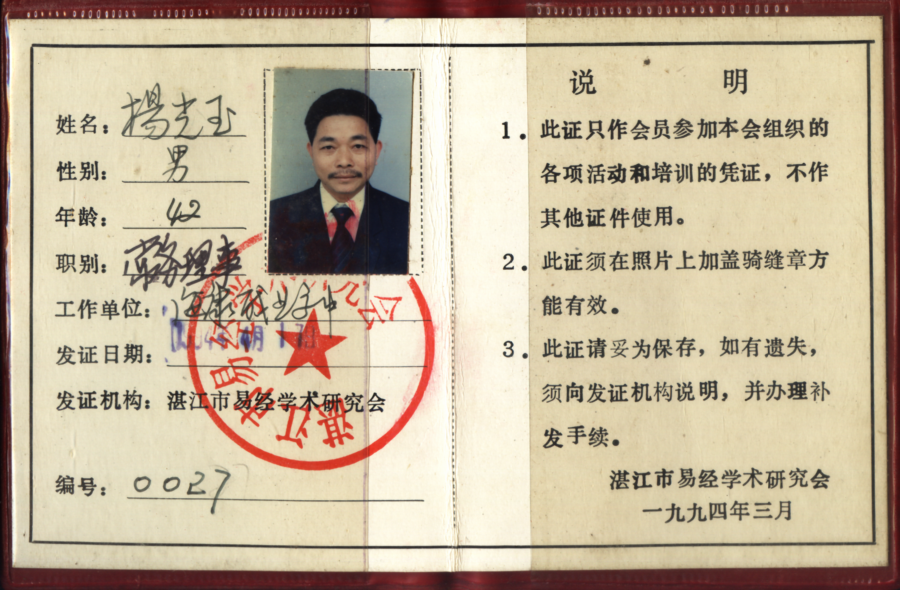 姓名：楊光玉
性别：男
年龄：42
职别：常务理事
工作单位：
发证日期：
发证机构：湛江市易经学术研究会
编号：0027
湛江市易经学术研究会
说 明
1．此证只作会员参加本会组织的
各项活动和培训的凭证，不作
其他证件使用。
2．此证须在照片上加盖骑缝章方
能有效。
3．此证请妥为保存，如有遗失，
须向发证机构说明，并办理补
发手续。
湛江市易经学术研究会
一九九四年三月